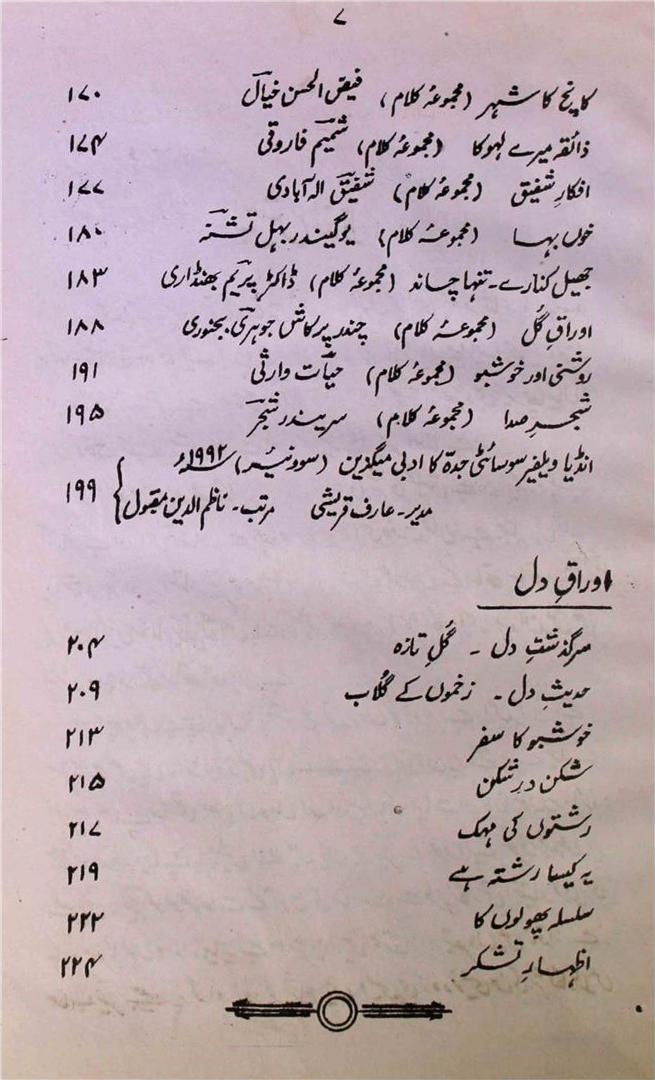 ۷
کانچ کا شہر (مجموعۂ کلام) فیض الحسن خیالؔ ۱۷۰
ذائقہ میرے لہو کا (مجموعۂ کلام) شمیمؔ فاروقی ۱۷۴
افکارِ شفیق (مجموعۂ کلام) شفیقؔ الہ آبادی ۱۷۷
خوں بہا (مجموعۂ کلام) یوگیندر بہل تشنہؔ ۱۸۰
جھیل کنارے۔ تنہا چاند (مجموعۂ کلام) ڈاکٹر پریم بھنڈاری ۱۸۳
اوراقِ گُل (مجموعۂ کلام) چندر پرکاش جوہرؔی۔ بجنوری ۱۸۸
روشنی اور خوشبو (مجموعۂ کلام) حیاتؔ وارثی ۱۹۱
شجرِ صدا (مجموعۂ کلام) سریندر شجرؔ ۱۹۵
انڈیا ویلفیر سوسائٹی جدہ کا ادبی میگزین (سوونیئر) ۱۹۹۲ء
مدیر۔ عارف قریشی مرتب۔ ناظم الدین مقبول } ۱۹۹
اوراقِ دل
سرگذشتِ دل ۔ گُلِ تازہ ۲۰۴
حدیثِ دل ۔ زخموں کے گُلاب ۲۰۹
خوشبو کا سفر ۲۱۳
شکن در شکن ۲۱۵
رشتوں کی مہک ۲۱۷
یہ کیسا رشتہ ہے ۲۱۹
سلسلہ پھولوں کا ۲۲۲
اظہارِ تشکر ۲۲۴